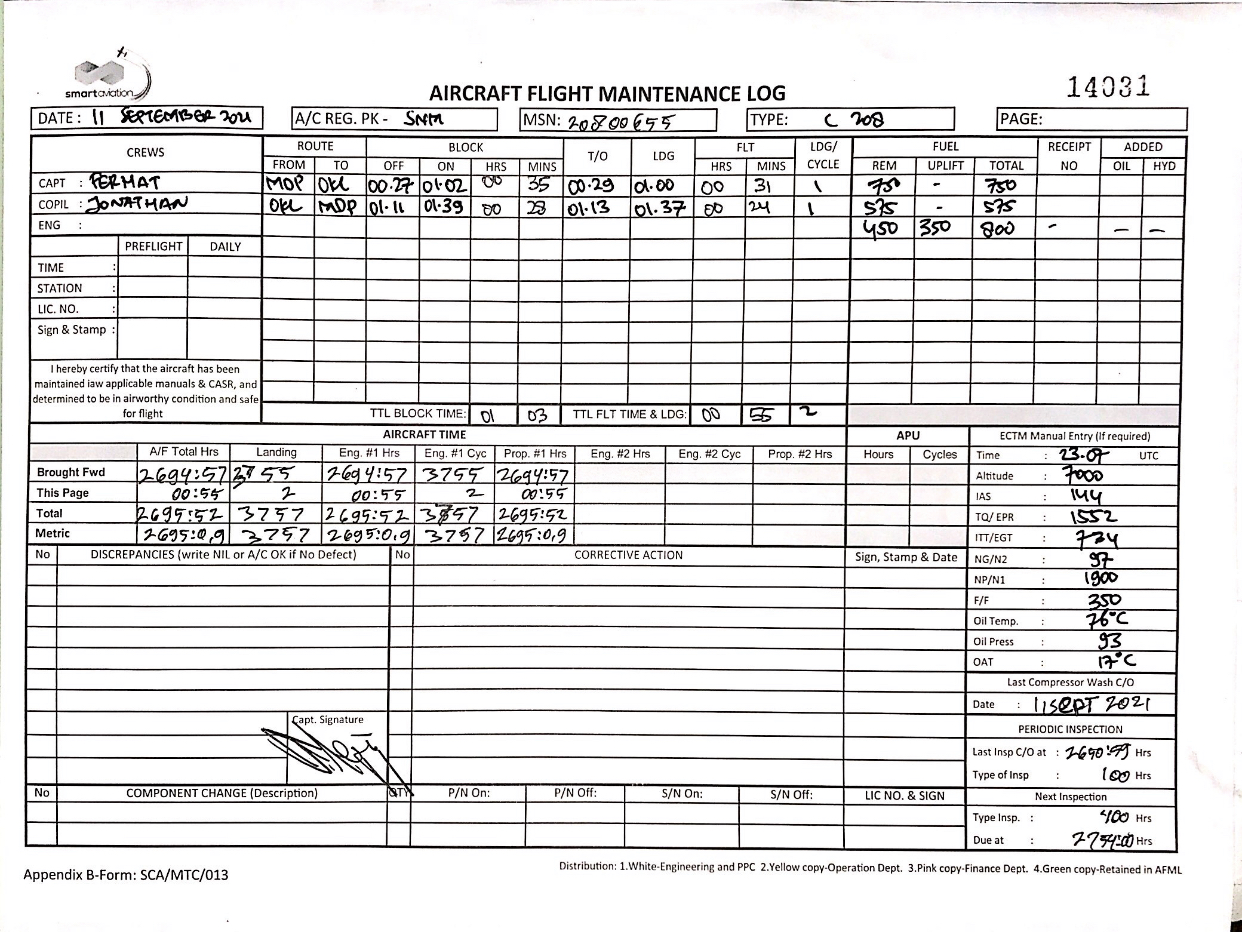 smartaviation
AIRCRAFT FLIGHT MAINTENANCE LOG
14031
DATE : 11 SEPTEMBER 2021 A/C REG. PK - SNM MSN: 20800655 TYPE: C 208 PAGE:
CREWS ROUTE BLOCK T/O LDG FLT LDG/ CYCLE FUEL RECEIPT NO ADDED
FROM TO OFF ON HRS MINS HRS MINS REM UPLIFT TOTAL OIL HYD
CAPT : PERMAT MOP OKL 00.27 01.02 00 35 00.29 01.00 00 31 1 750 - 750
COPIL : JONATHAN OKL MDP 01.11 01.39 00 28 01.13 01.37 00 24 1 575 - 575
ENG : 450 350 800 - — —
PREFLIGHT DAILY
TIME :
STATION :
LIC. NO. :
Sign & Stamp :
I hereby certify that the aircraft has been
maintained iaw applicable manuals & CASR, and
determined to be in airworthy condition and safe
for flight
TTL BLOCK TIME: 01 03 TTL FLT TIME & LDG: 00 55 2
AIRCRAFT TIME APU ECTM Manual Entry (If required)
A/F Total Hrs Landing Eng. #1 Hrs Eng. #1 Cyc Prop. #1 Hrs Eng. #2 Hrs Eng. #2 Cyc Prop. #2 Hrs Hours Cycles
Brought Fwd 2694:57 3755 2694:57 3755 2694:57
This Page 00:55 2 00:55 2 00:55
Total 2695:52 3757 2695:52 3757 2695:52
Metric 2695:0,9 3757 2695:0,9 3757 2695:0,9
Time : 23.07 UTC
Altitude : 7000
IAS : 144
TQ/ EPR : 1552
ITT/EGT : 724
NG/N2 : 97
NP/N1 : 1900
F/F : 350
Oil Temp. : 76°C
Oil Press : 93
OAT : 17°C
Last Compressor Wash C/O
Date : 11 SEPT 2021
PERIODIC INSPECTION
Last Insp C/O at : Hrs
Type of Insp : 100 Hrs
Next Inspection
Type Insp. : 400 Hrs
Due at : 2754:00 Hrs
No DISCREPANCIES (write NIL or A/C OK if No Defect) No CORRECTIVE ACTION Sign, Stamp & Date
Capt. Signature
No COMPONENT CHANGE (Description) QTY P/N On: P/N Off: S/N On: S/N Off: LIC NO. & SIGN
Distribution: 1.White-Engineering and PPC 2.Yellow copy-Operation Dept. 3.Pink copy-Finance Dept. 4.Green copy-Retained in AFML
Appendix B-Form: SCA/MTC/013